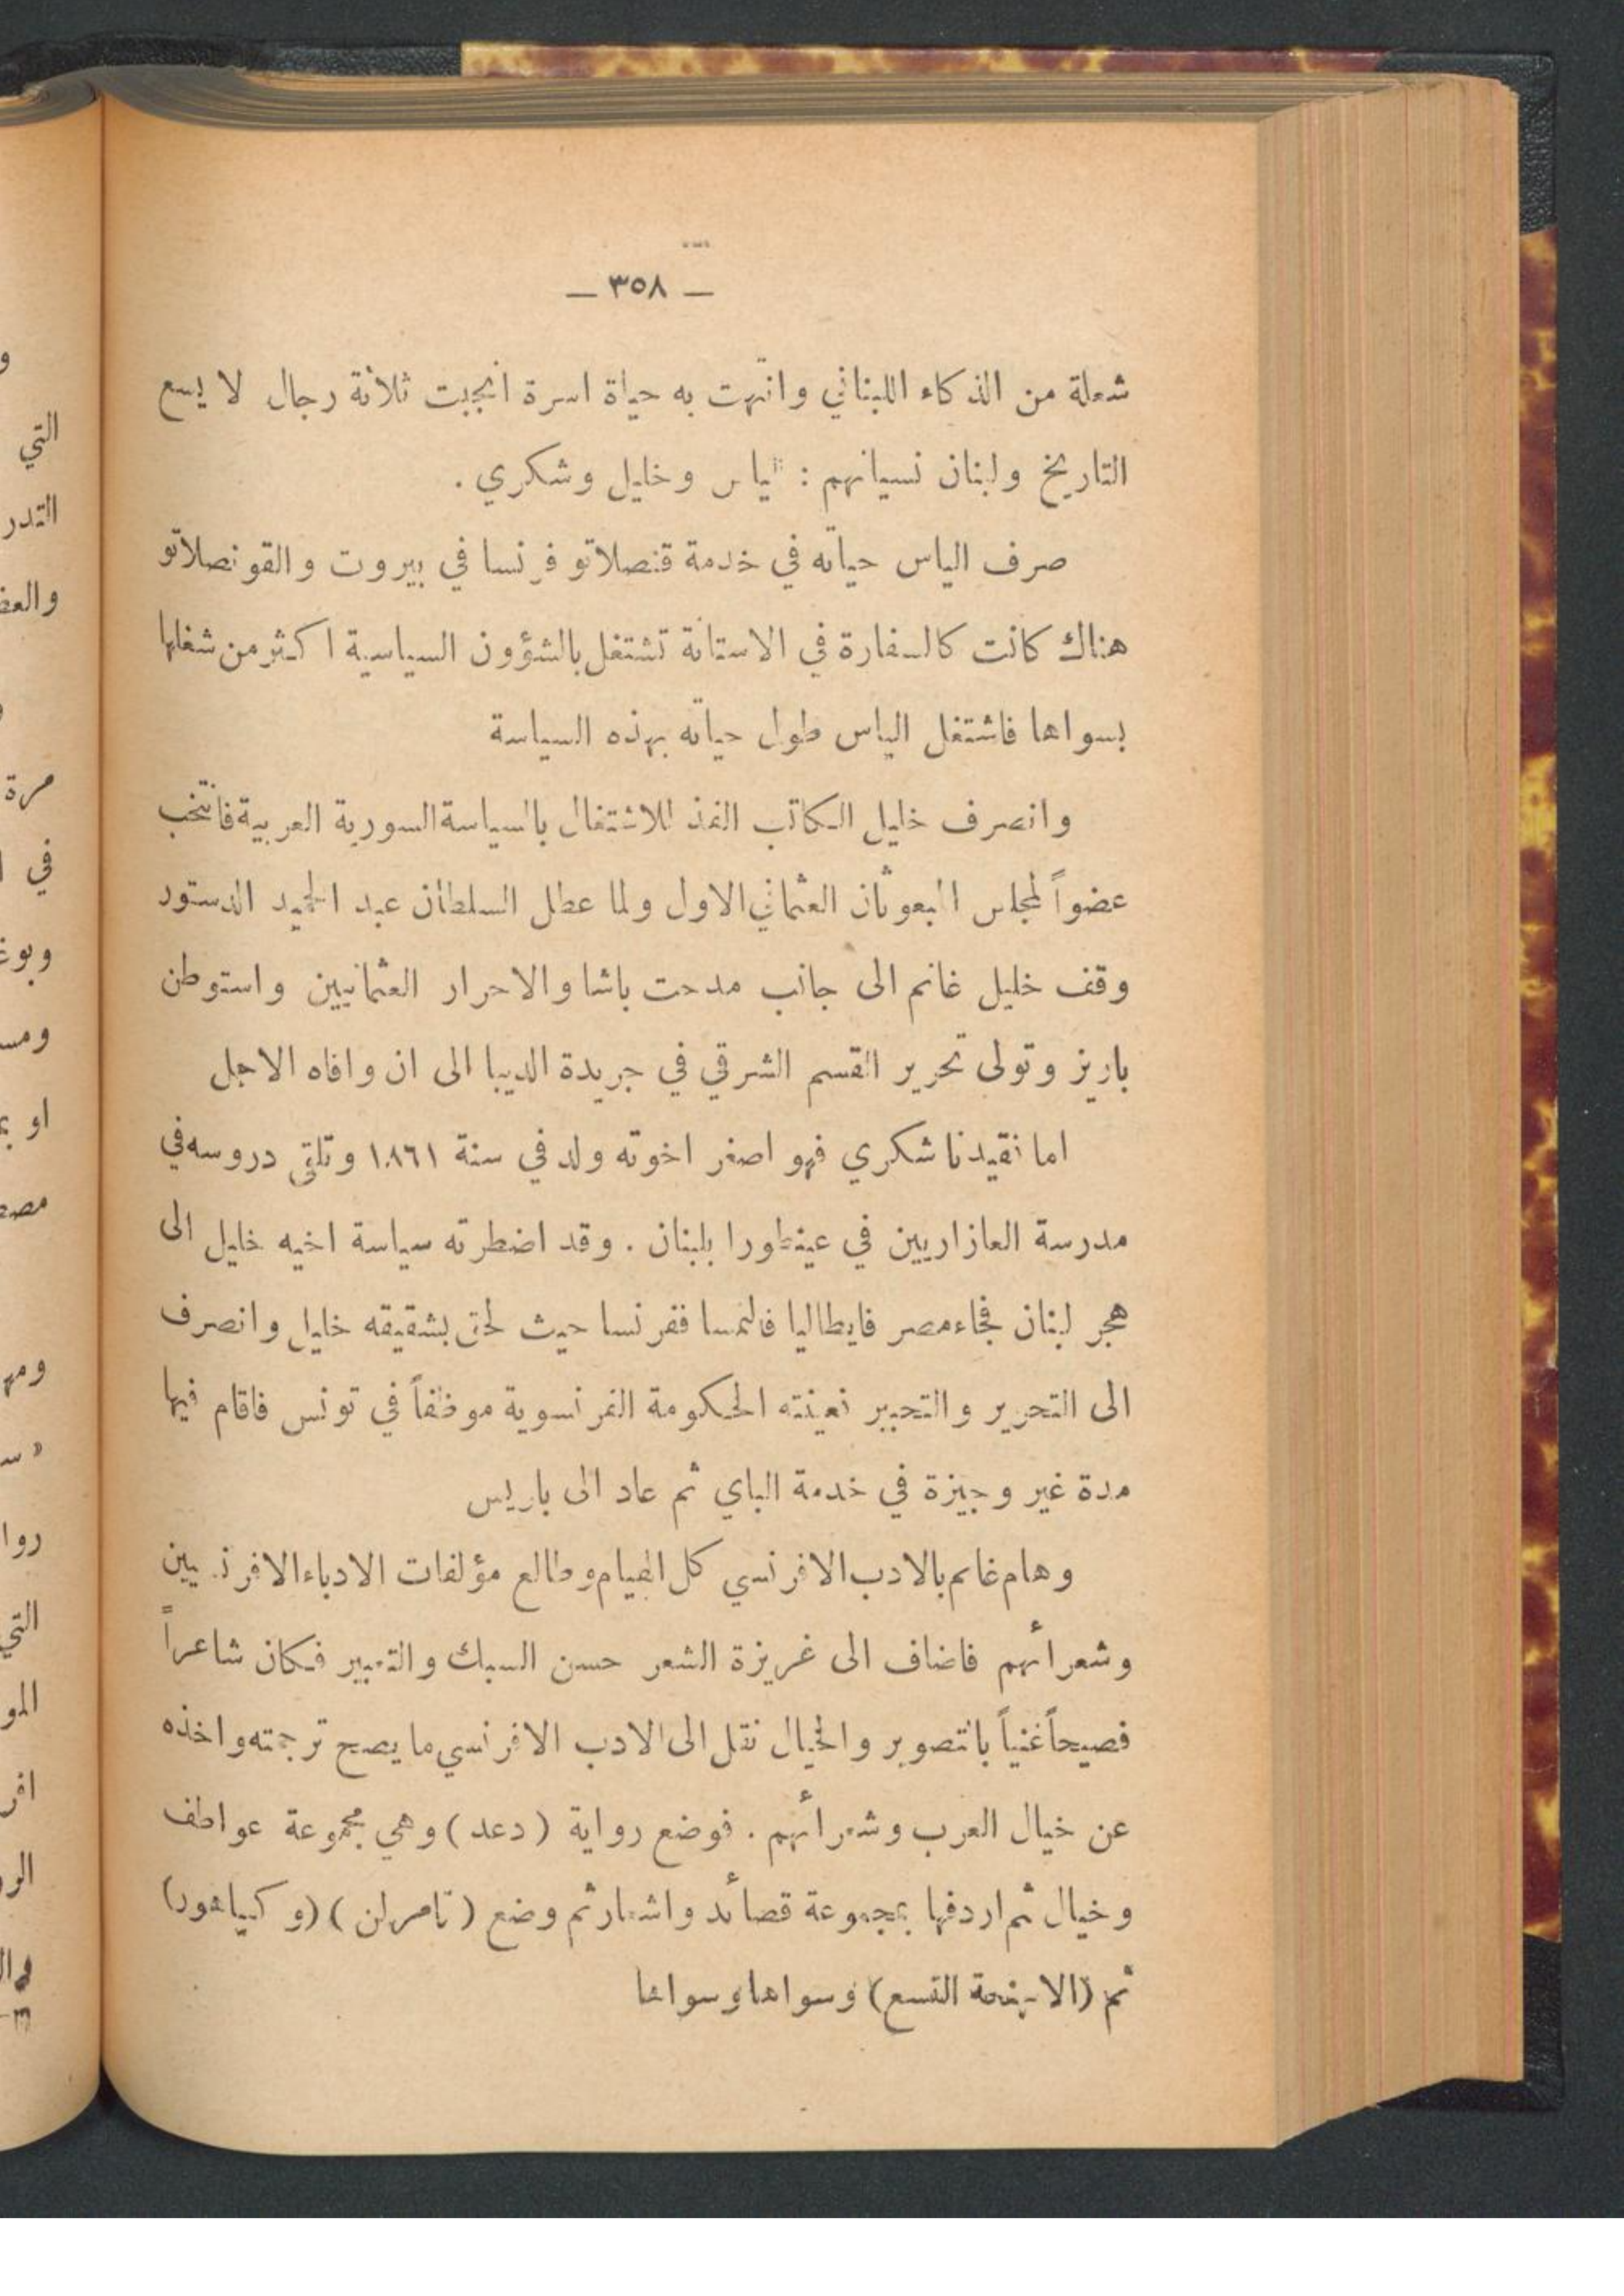 — ٣٥٨ —
شعلة من الذكاء اللبناني وانتهت به حياة اسرة انجبت ثلاثة رجال لا يسع
التاريخ ولبنان نسيانهم : الياس وخليل وشكري .
صرف الياس حياته في خدمة قنصلاتو فرنسا في بيروت والقونصلاتو
هناك كانت كالسفارة في الاستانة تشتغل بالشؤون السياسية اكثر من شغلها
بسواها فاشتغل الياس طول حياته بهذه السياسة
وانصرف خليل الكاتب الفذ للاشتغال بالسياسة السورية العربية فانتخب
عضواً لمجلس المبعوثان العثماني الاول ولما عطل السلطان عبد الحميد الدستور
وقف خليل غانم الى جانب مدحت باشا والاحرار العثمانيين واستوطن
باريز وتولى تحرير القسم الشرقي في جريدة الديبا الى ان وافاه الاجل
اما فقيدنا شكري فهو اصغر اخوته ولد في سنة ١٨٦١ وتلقى دروسه في
مدرسة العازاريين في عينطورا بلبنان . وقد اضطرته سياسة اخيه خليل الى
هجر لبنان فجاء مصر فايطاليا فالنمسا ففرنسا حيث لحق بشقيقه خليل وانصرف
الى التحرير والتحبير فعينته الحكومة الفرنسوية موظفاً في تونس فاقام فيها
مدة غير وجيزة في خدمة الباي ثم عاد الى باريس
وهام غانم بالادب الافرنسي كل الهيام وطالع مؤلفات الادباء الافرنسيين
وشعرائهم فاضاف الى غريزة الشعر حسن السبك والتعبير فكان شاعراً
فصيحاً غنياً بالتصوير والخيال نقل الى الادب الافرنسي ما يصح ترجمته واخذه
عن خيال العرب وشعرائهم . فوضع رواية ( دعد ) وهي مجموعة عواطف
وخيال ثم اردفها بمجموعة قصائد واشعار ثم وضع ( تامرلن ) (و
ثم (الا التسع) وسواها وسواها
التي
التدر
مرة
في
التي